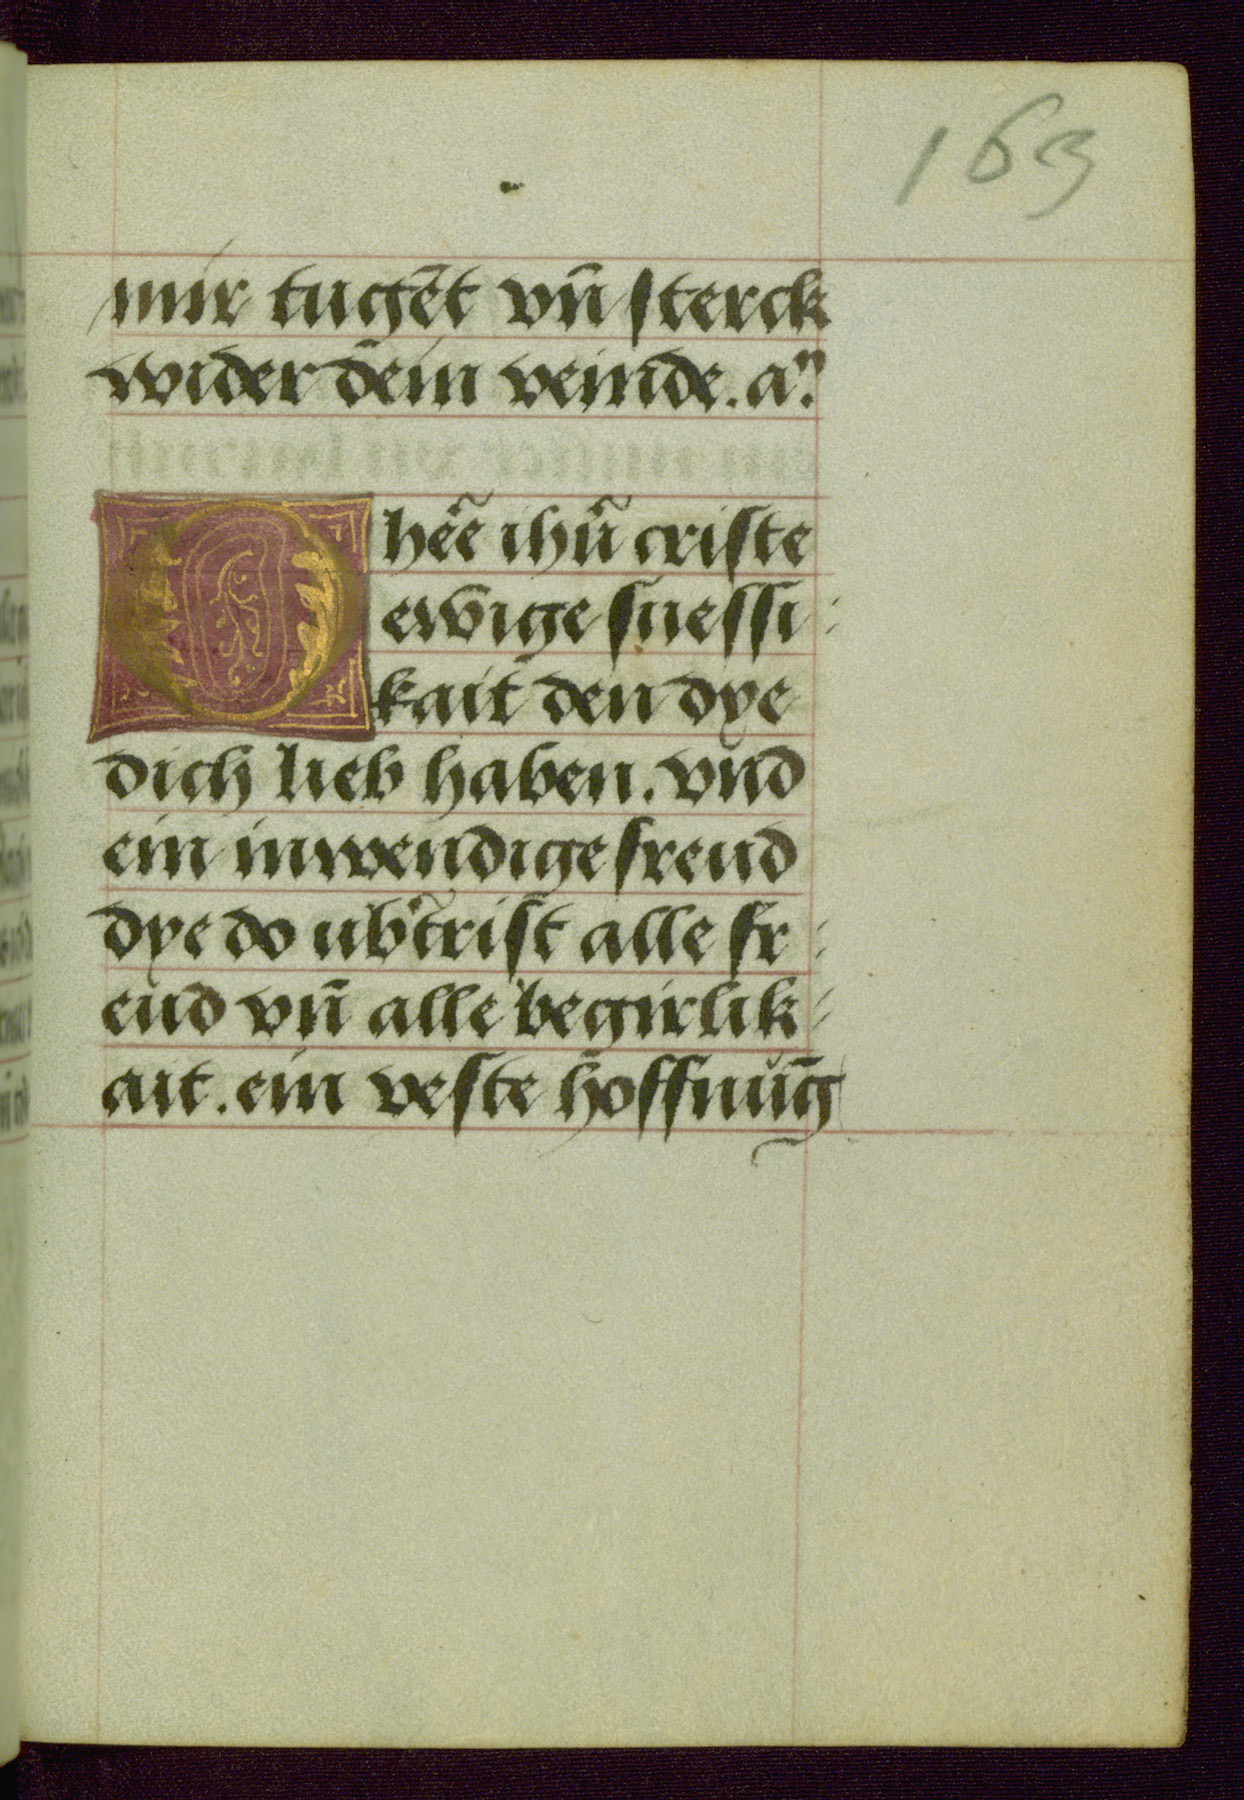 163
mir tugēt vn̄ sterck
wider dēin veinde. aⁿ.
O hēr̃e ihũ criste
ewige suessi-
kait den dye
dich lieb haben. vnd
ein inwendige freud
dye do ub̃trift alle fr-
eud vn̄ alle begirlik-
ait. ein veste hoffnūg